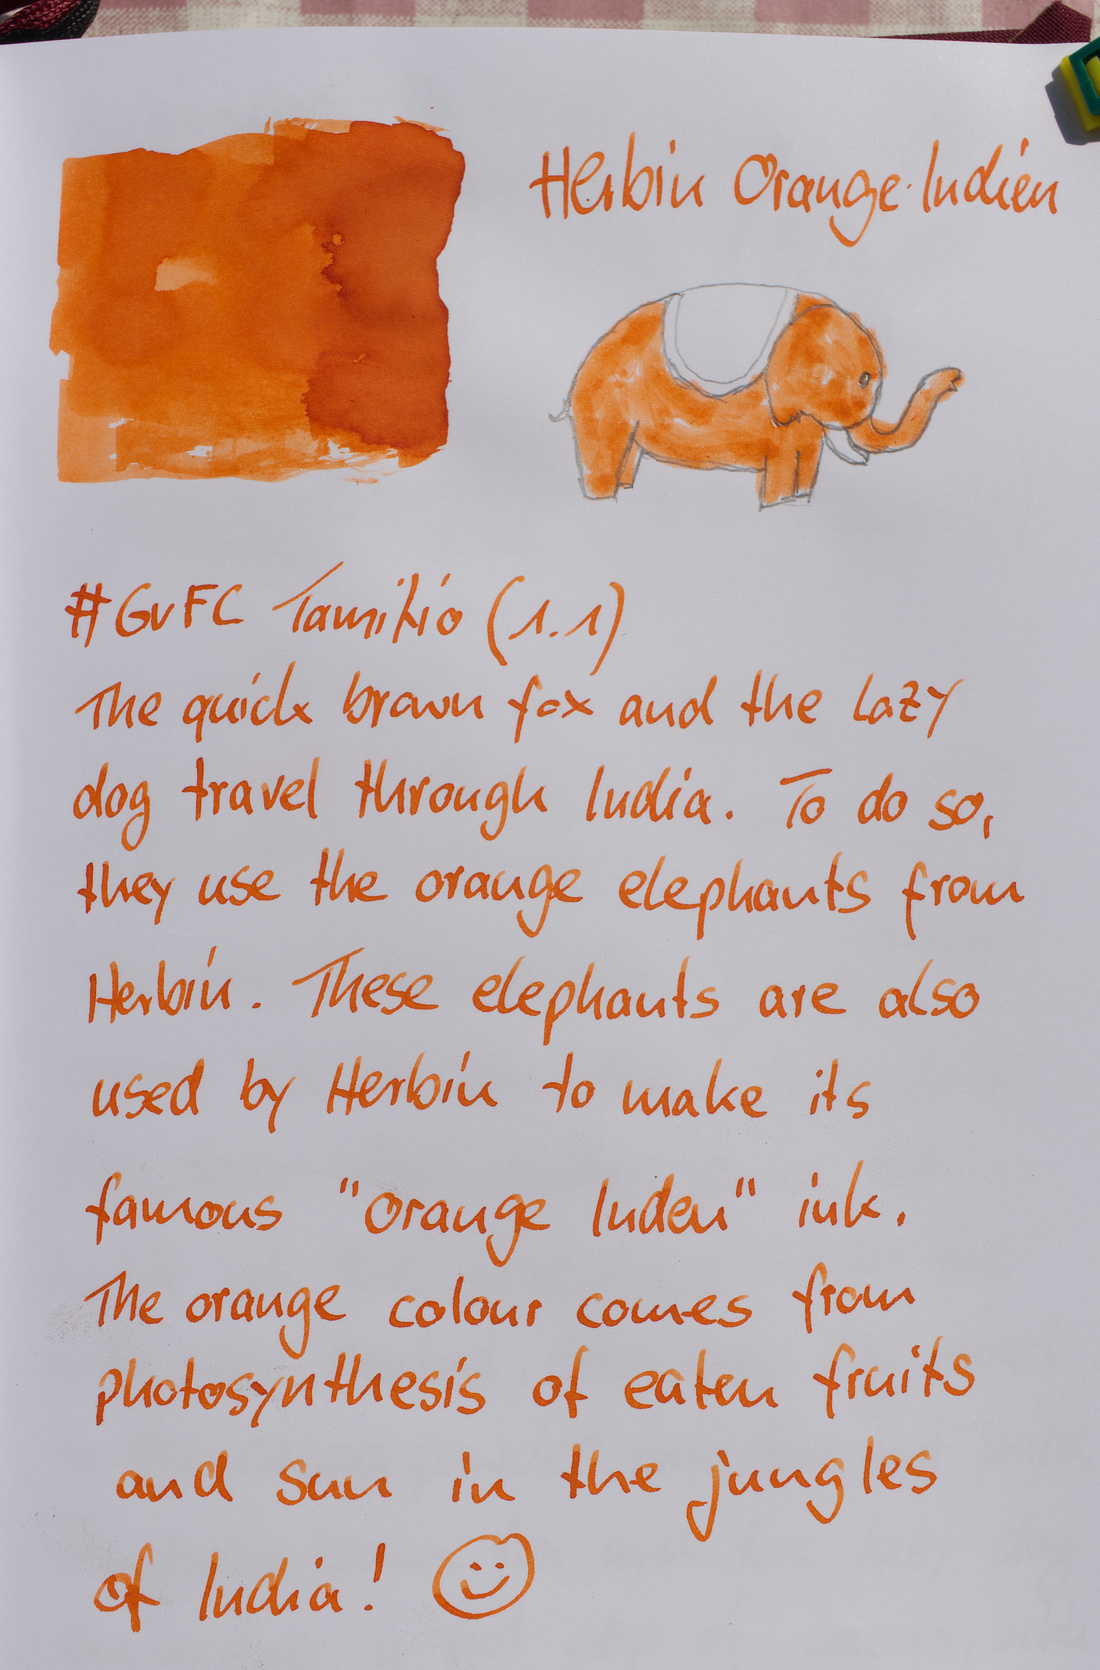 Herbin Orange Indien
#GvFC Tamitio (1.1)
The quick brown fox and the lazy
dog travel through India. To do so,
they use the orange elephants from
Herbin. These elephants are also
used by Herbin to make its
famous "Orange Inden" ink.
The orange colour comes from
photosynthesis of eaten fruits
and sun in the jungles
of India!